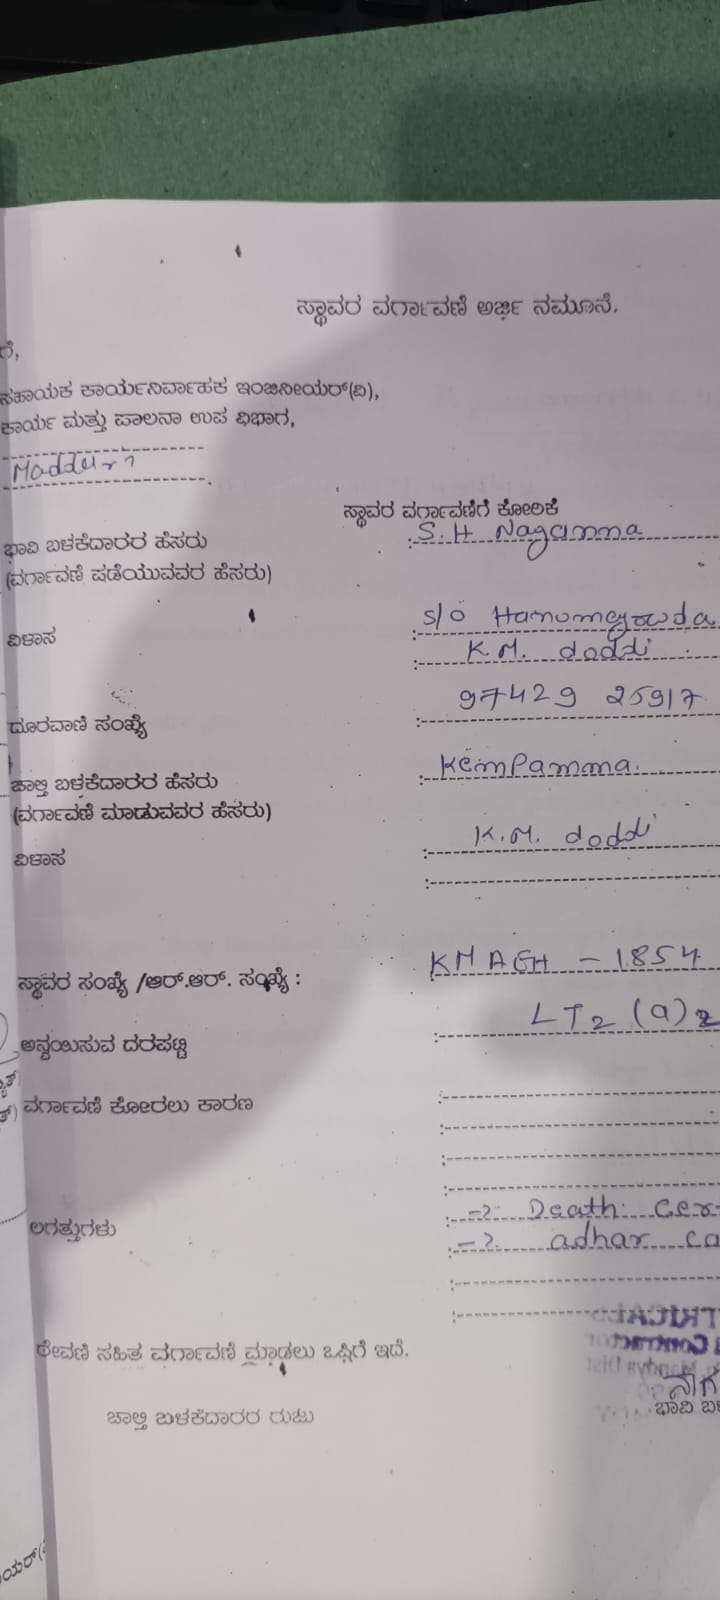 ಸ್ಥಾವರ ವರ್ಗಾವಣೆ ಅರ್ಜಿ ನಮೂನೆ.
ಗೆ,
ಸಹಾಯಕ ಕಾರ್ಯನಿರ್ವಾಹಕ ಇಂಜಿನೀಯರ್(ವಿ),
ಕಾರ್ಯ ಮತ್ತು ಪಾಲನಾ ಉಪ ವಿಭಾಗ,
ಸ್ಥಾವರ ವರ್ಗಾವಣೆಗೆ ಕೋರಿಕೆ
ಭಾವಿ ಬಳಕೆದಾರರ ಹೆಸರು : S.H Nagamma
(ವರ್ಗಾವಣೆ ಪಡೆಯುವವರ ಹೆಸರು)
ವಿಳಾಸ : s/o Hanumegowda
: K.M. doddi
ದೂರವಾಣಿ ಸಂಖ್ಯೆ : 97429 25917
ಚಾಲ್ತಿ ಬಳಕೆದಾರರ ಹೆಸರು : KemPamma.
(ವರ್ಗಾವಣೆ ಮಾಡುವವರ ಹೆಸರು)
ವಿಳಾಸ : K.M. doddi
ಸ್ಥಾವರ ಸಂಖ್ಯೆ /ಆರ್.ಆರ್. ಸಂಖ್ಯೆ : KMAEH - 1854
ಅನ್ವಯಿಸುವ ದರಪಟ್ಟಿ : LT2 (a) 2
ವರ್ಗಾವಣೆ ಕೋರಲು ಕಾರಣ
ಲಗತ್ತುಗಳು : -> Death: Cer
: -> adhar ca
ಠೇವಣಿ ಸಹಿತ ವರ್ಗಾವಣೆ ಮಾಡಲು ಒಪ್ಪಿಗೆ ಇದೆ.
ನಾಗ
ಚಾಲ್ತಿ ಬಳಕೆದಾರರ ರುಜು ಭಾವಿ ಬಳ